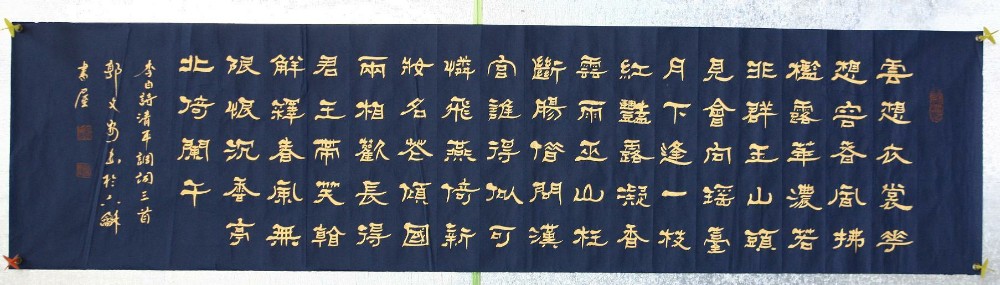 雲想衣裳花
想容春風拂
檻露華濃若
非群玉山頭
見會向瑤臺
月下逢一枝
紅豔露凝香
雲雨巫山枉
斷腸借問漢
宮誰得似可
憐飛燕倚新
妝名花傾國
兩相歡長得
君王帶笑看
解釋春風無
限恨沉香亭
北倚闌干
李白詩清平調詞三首
郭文安書於穌
書屋